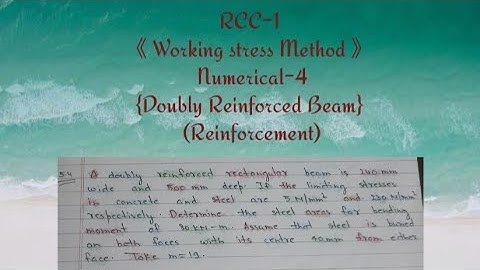 RCC-1
《 Working stress Method 》
Numerical-4
{Doubly Reinforced Beam}
(Reinforcement)
5.4 A doubly reinforced rectangular beam is 240 mm
wide and 500 mm deep. If the limiting stresses
in concrete and steel are 5 N/mm² and 130 N/mm²
respectively. Determine the steel areas for bending
moment of 80 KN-m. Assume that steel is
on both faces with its centre 40mm from either
face. Take m=19.